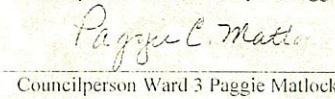 Paggie C. Matlo
Councilperson Ward 3 Paggie Matlock